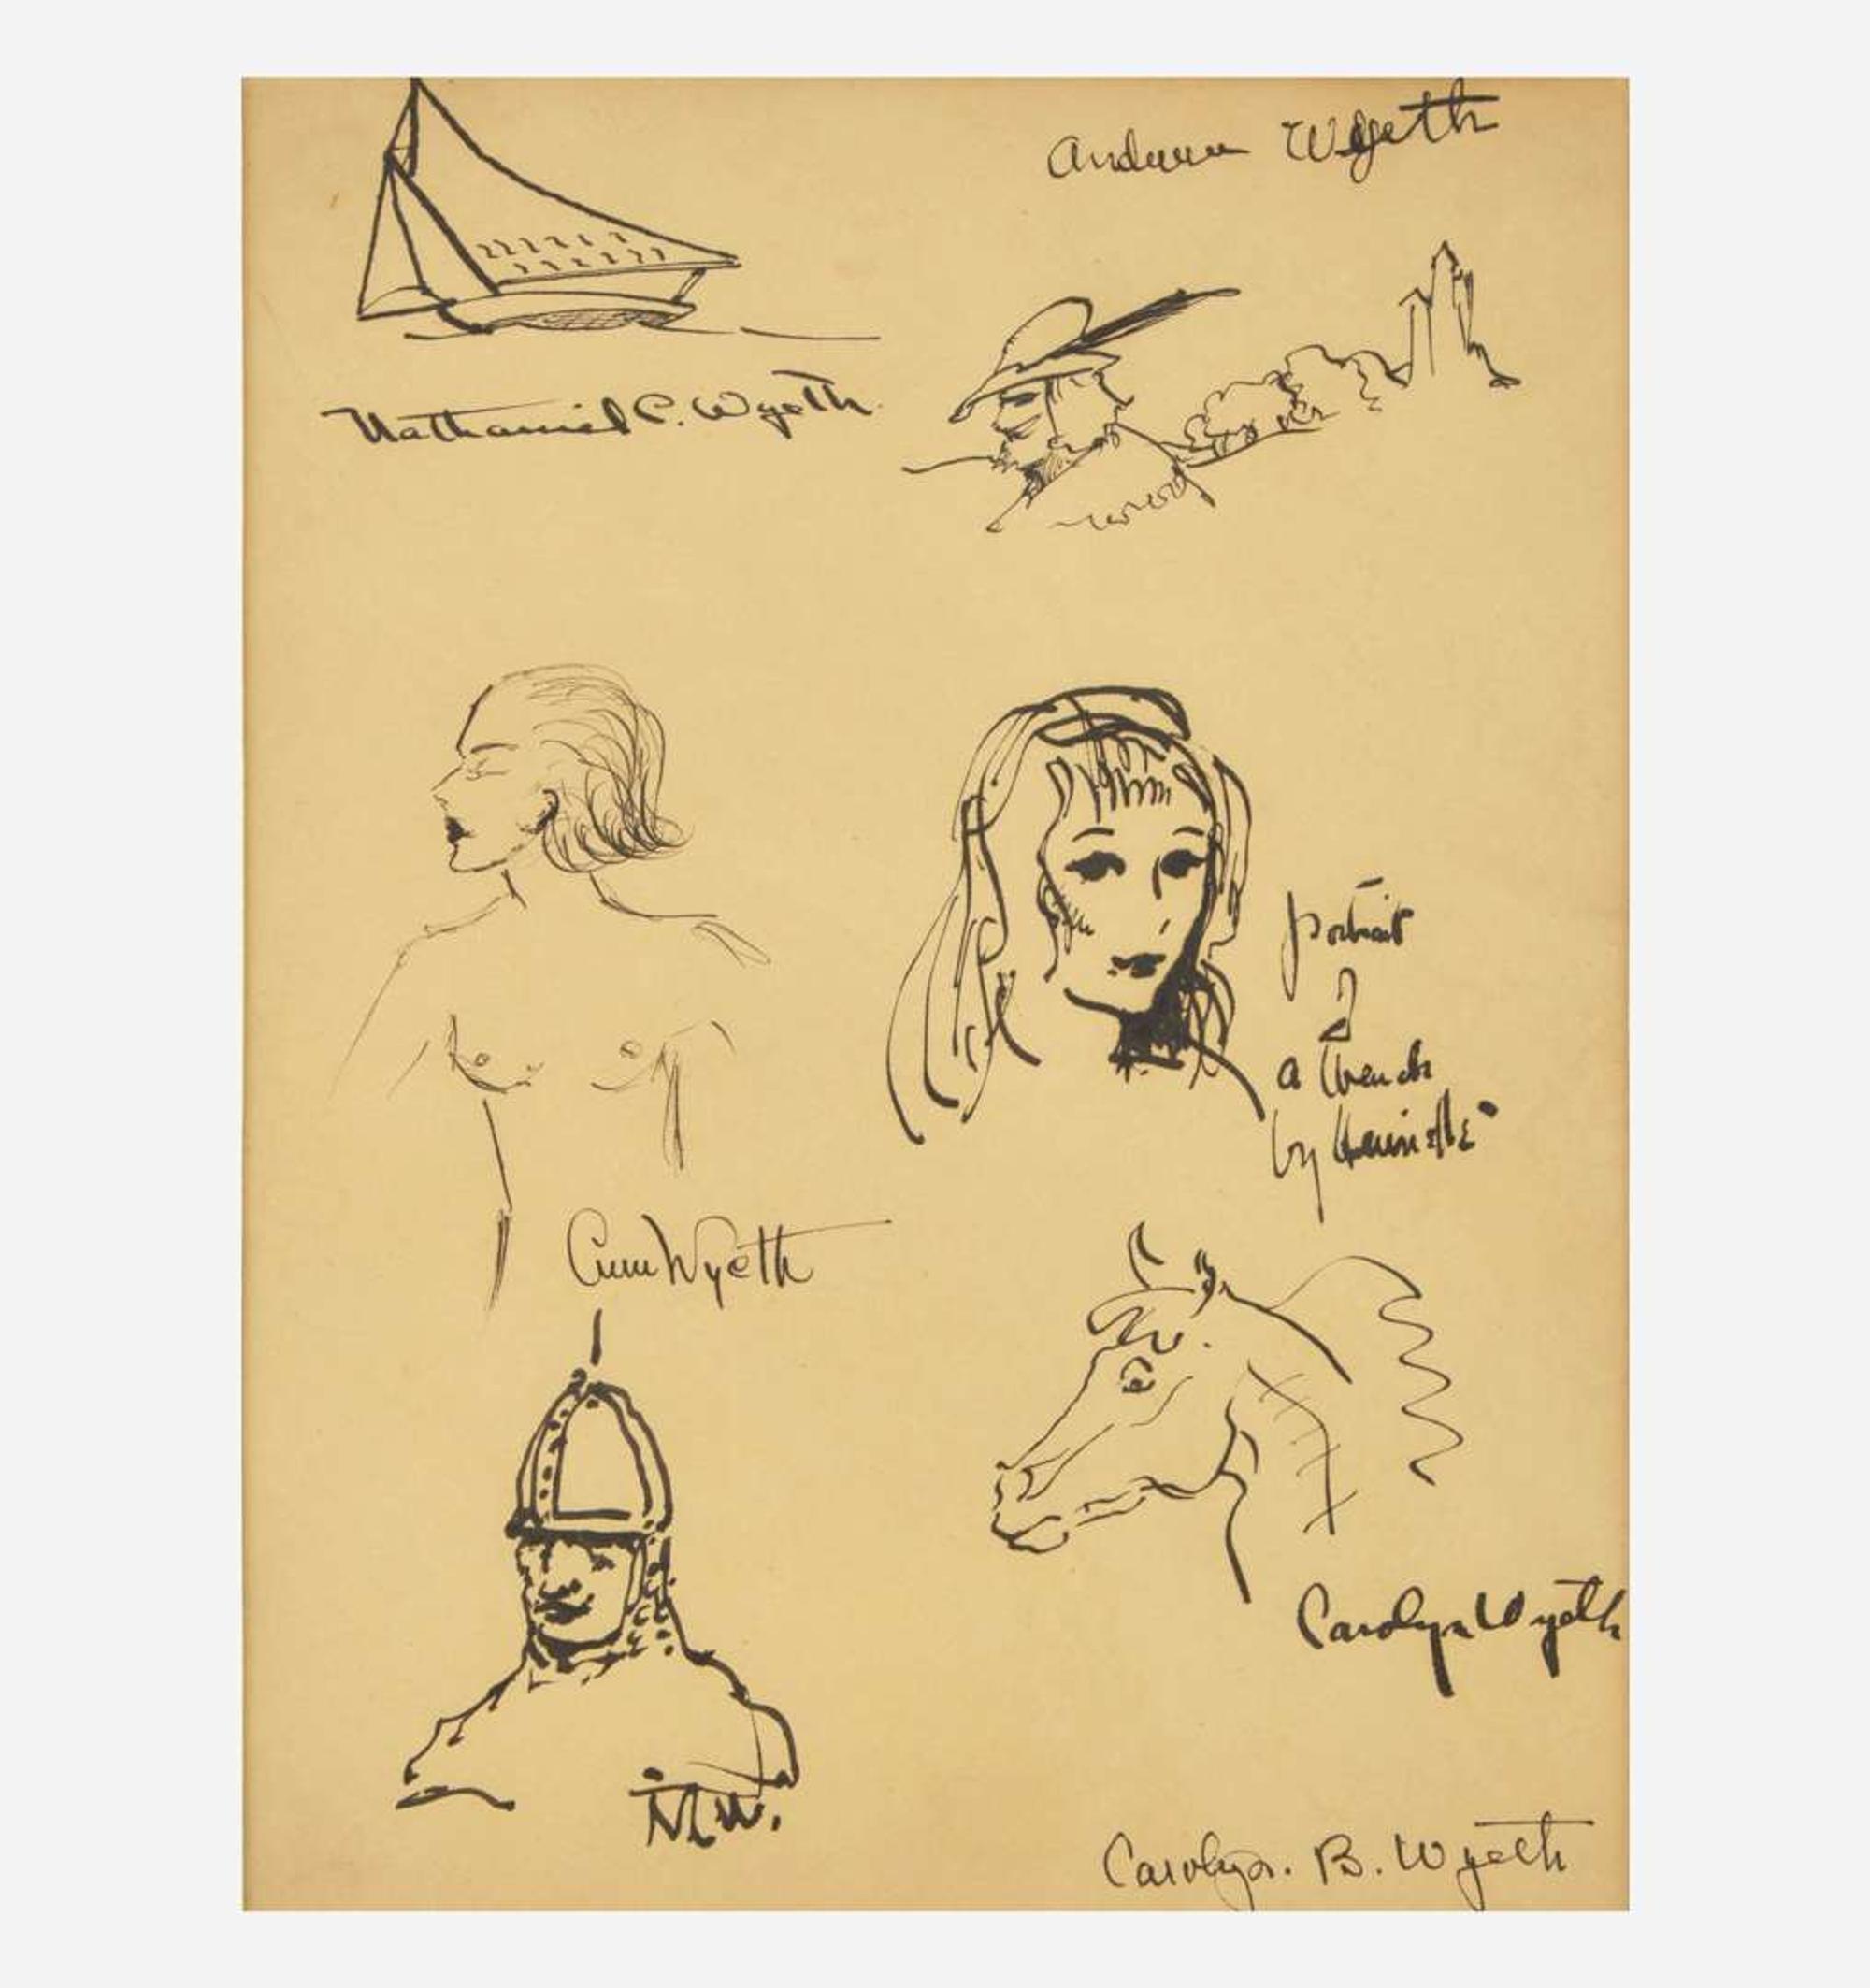 Andrew Wyeth
Nathaniel C. Wyeth
portrait
of
a Wench
by Henriette
Ann Wyeth
Carolyn Wyeth
N.C.W.
Carolyn. B. Wyeth